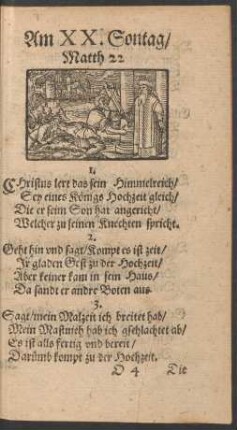 Am XX. Sontag/
Matth 22
1.
CHristus lert das sein Himmelreich/
Sey eines Königs Hochzeit gleich/
Die er seim Son hat angericht/
Welcher zu seinen Knechten spricht.
2.
Geht hin vnd sagt/ Kompt es ist zeit/
Jr gladen Gest zu der Hochzeit/
Aber keiner kam in sein Haus/
Da sandt er andre Boten aus
3.
Sagt/ mein Malzeit ich breitet hab/
Mein Mastuieh hab ich gschlachtet ab/
Es ist alls fertig vnd bereit/
Darümb kompt zu der Hochzeit.
O 4 Die